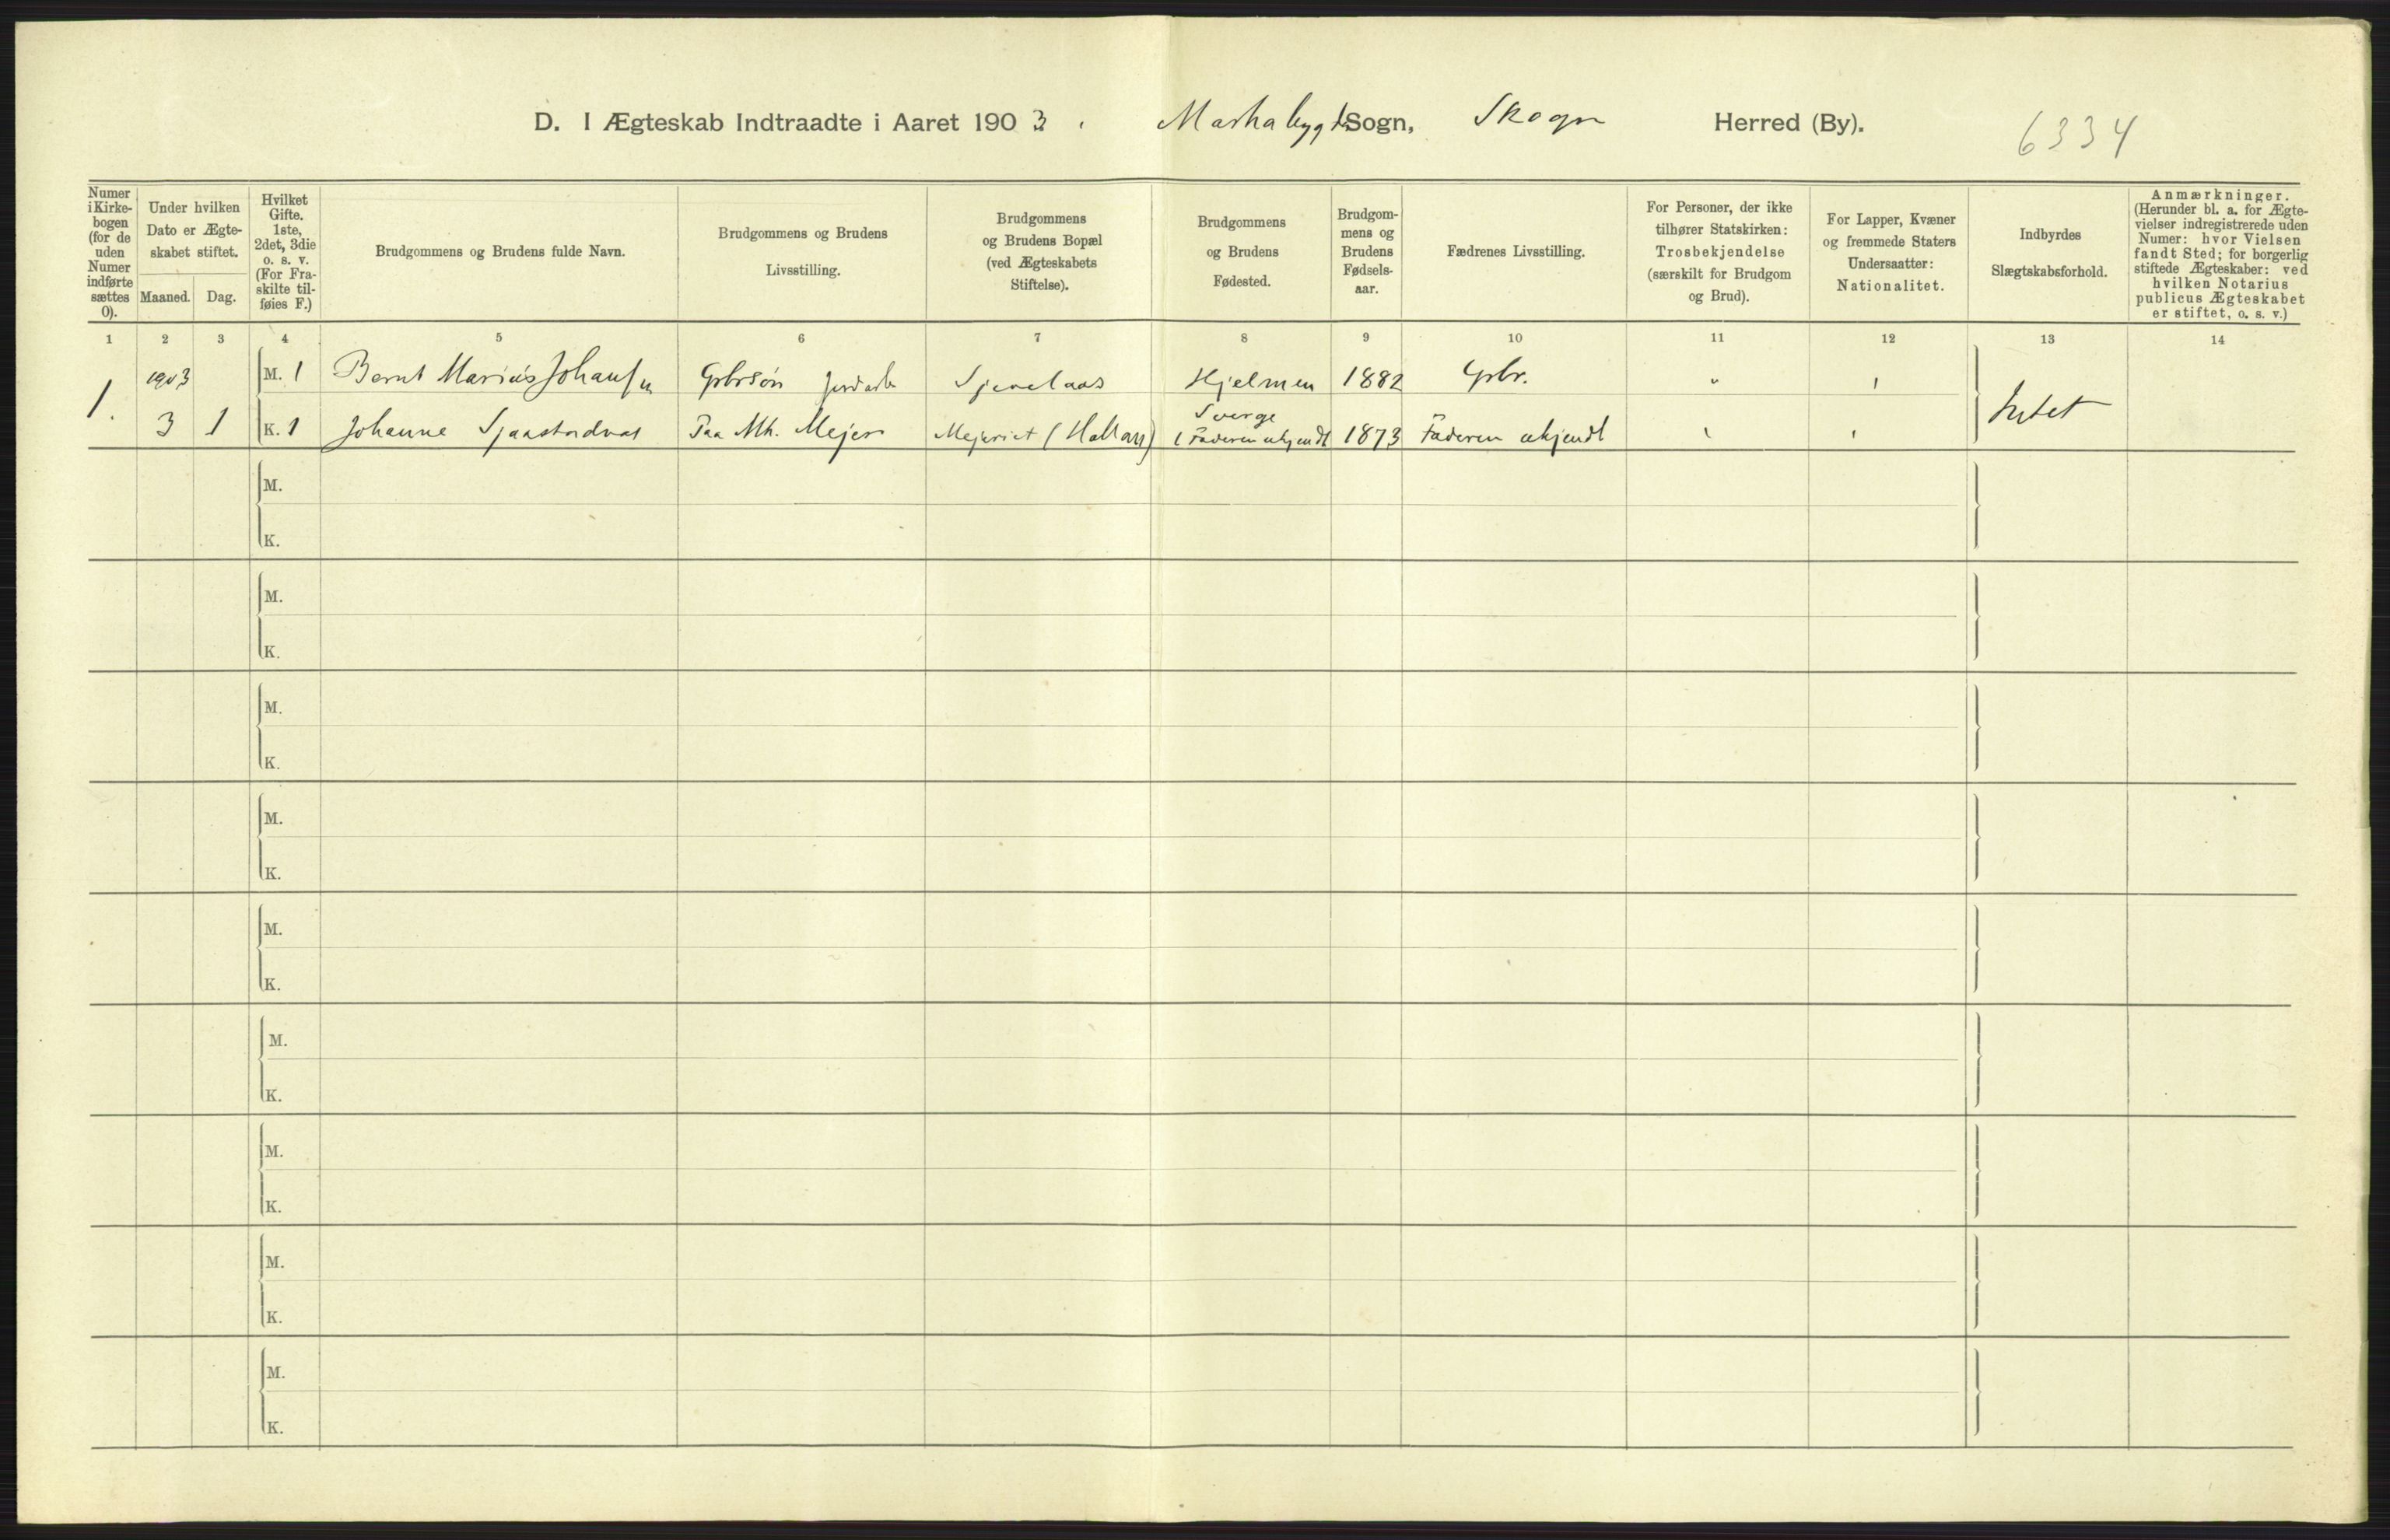 D. I Ægteskab Indtraadte i Aaret 1903. Markabygd Sogn, Skogn Herred (By). 6334
Numer i Kirkebogen (for de uden Numer indførte sættes 0).
Under hvilken Dato er Ægteskabet stiftet.
Maaned. Dag.
Hvilket Gifte. 1ste, 2det, 3die o. s. v. (For Fraskilte tilføies F.)
Brudgommens og Brudens fulde Navn.
Brudgommens og Brudens Livsstilling.
Brudgommens og Brudens Bopæl (ved Ægteskabets Stiftelse).
Brudgommens og Brudens Fødested.
Brudgommens og Brudens Fødselsaar.
Fædrenes Livsstilling.
For Personer, der ikke tilhører Statskirken: Trosbekjendelse (særskilt for Brudgom og Brud).
For Lapper, Kvæner og fremmede Staters Undersaatter: Nationalitet.
Indbyrdes Slægtskabsforhold.
Anmærkninger. (Herunder bl. a. for Ægtevielser indregistrerede uden Numer: hvor Vielsen fandt Sted; for borgerlig stiftede Ægteskaber: ved hvilken Notarius publicus Ægteskabet er stiftet, o. s. v.)
1 2 3 4 5 6 7 8 9 10 11 12 13 14
1903 M. 1 Bernt Marius Johansen Gbrsøn Hjelmen 1882 Gbr. "
1. 3 1 K. 1 Johanne Paa Mejeriet Sverge (Faderen ukjendt 1873 Faderen ukjendt Intet
M.
K.
M.
K.
M.
K.
M.
K.
M.
K.
M.
K.
M.
K.
M.
K.
M.
K.